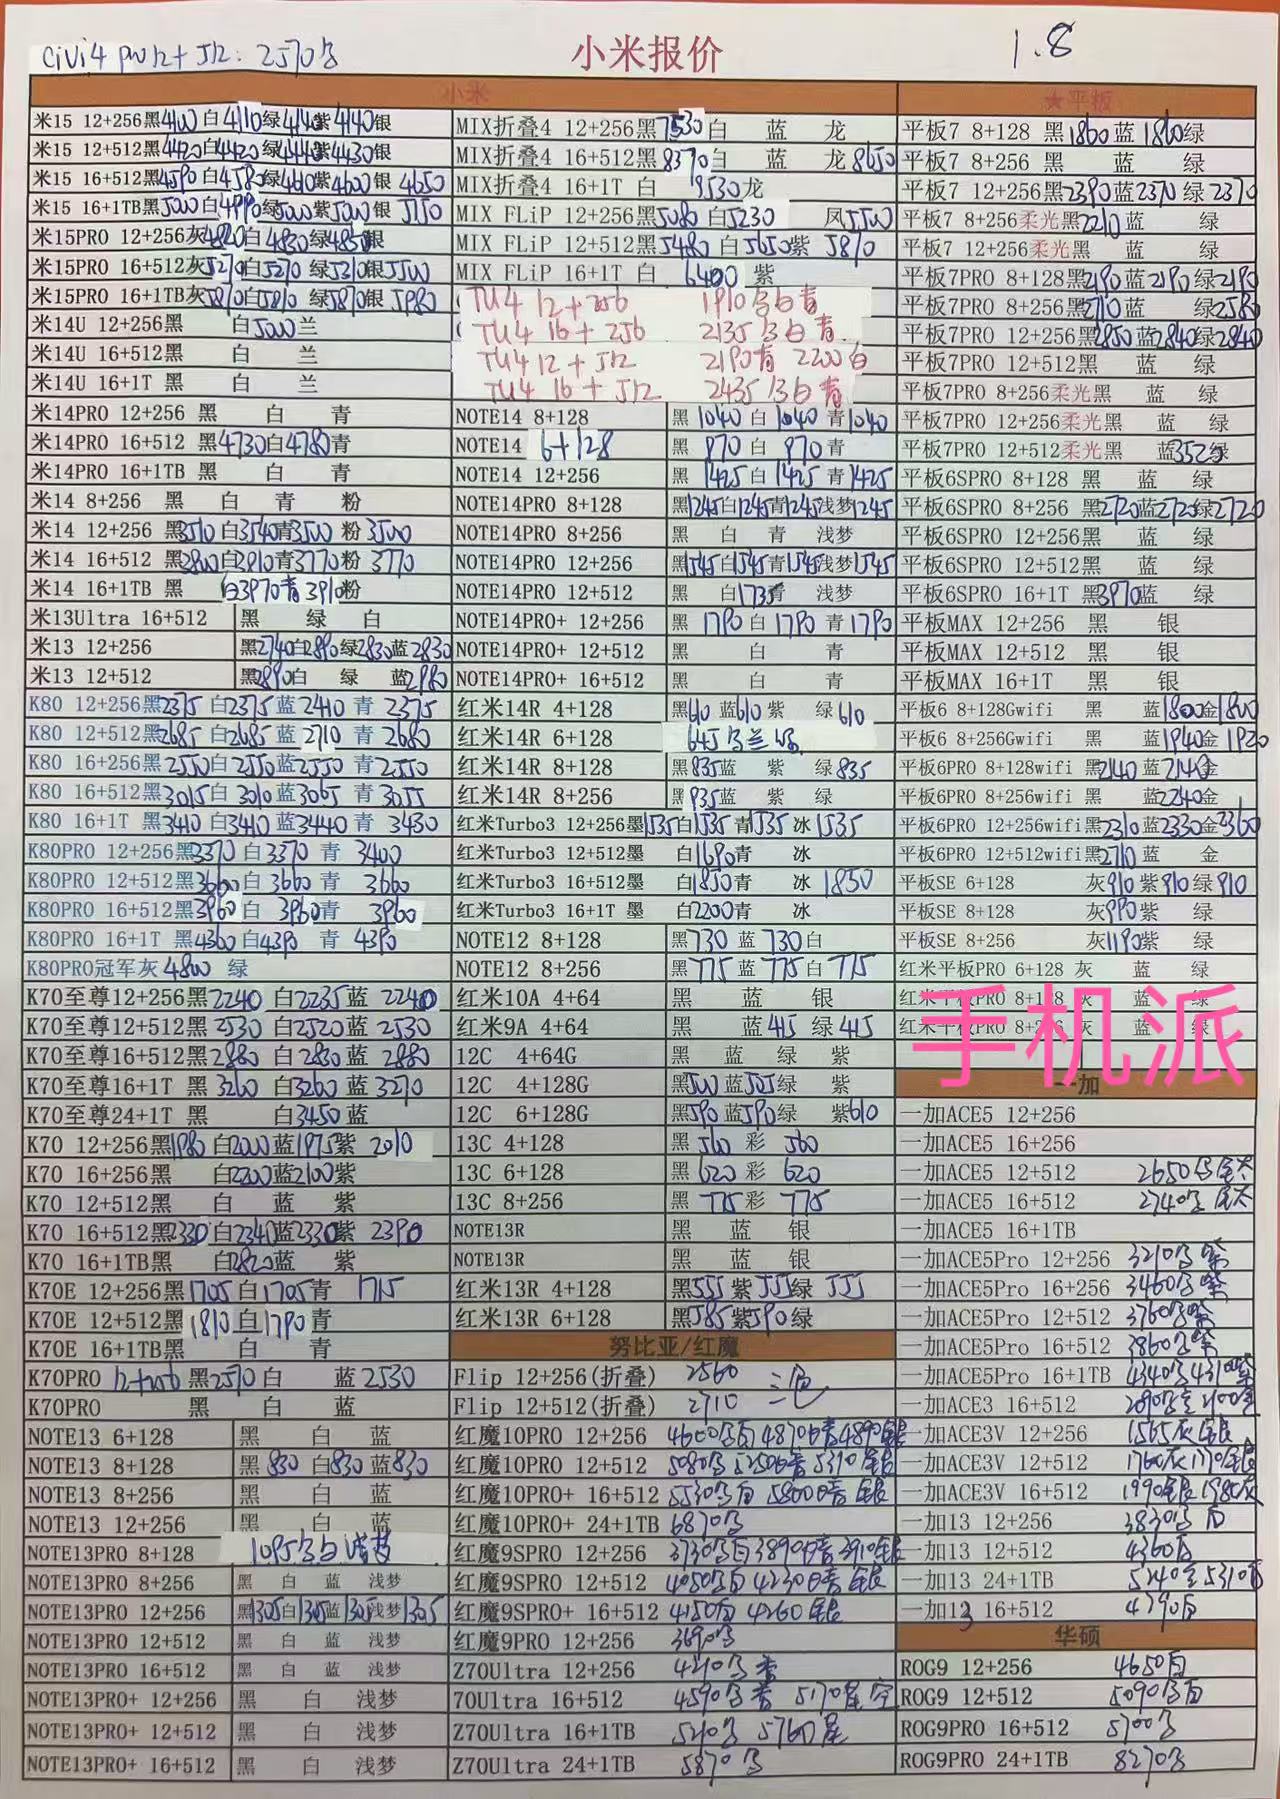 Civi4 pro 12+512: 2570乌
小米报价
1.8
小米
★平板
米15 12+256黑4100 白4110绿4140紫4140银
米15 12+512黑4420白4420绿4440紫4430银
米15 16+512黑4590白4580绿4610紫4600银 4650
米15 16+1TB黑5000白4990绿5000紫5000银 5150
米15PRO 12+256灰4820白4830绿4850银
米15PRO 16+512灰5270白5270 绿5310银5500
米15PRO 16+1TB灰5870白5810 绿5870银 5980
米14U 12+256黑 白5000兰
米14U 16+512黑 白 兰
米14U 16+1T 黑 白 兰
米14PRO 12+256 黑 白 青
米14PRO 16+512 黑4730白4780青
米14PRO 16+1TB 黑 白 青
米14 8+256 黑 白 青 粉
米14 12+256 黑3510白3540青3500 粉3500
米14 16+512 黑2800白3910青3770粉 3770
米14 16+1TB 黑 白3970青3910粉
米13Ultra 16+512 黑 绿 白
米13 12+256 黑2740白2890绿2830蓝2830
米13 12+512 黑2890白 绿 蓝2980
K80 12+256黑2375 白2375蓝2410 青 2375
K80 12+512黑2685白2685蓝2710 青 2680
K80 16+256黑2550白2550蓝2550 青2550
K80 16+512黑3015白3010蓝3065 青3055
K80 16+1T 黑3410白3410 蓝3440 青 3430
K80PRO 12+256黑3370白3370 青 3400
K80PRO 12+512黑3660白 3660 青 3660
K80PRO 16+512黑3960白 3960青 3960
K80PRO 16+1T 黑4360白4390 青 4390
K80PRO冠军灰4800 绿
K70至尊12+256黑2240 白2235蓝 2240
K70至尊12+512黑2530 白2520蓝 2530
K70至尊16+512黑2880 白2830蓝 2880
K70至尊16+1T 黑 3260 白3260蓝 3270
K70至尊24+1T 黑 白3450蓝
K70 12+256黑1980白2000蓝1975紫 2010
K70 16+256黑 白2200蓝2100紫
K70 12+512黑 白 蓝 紫
K70 16+512黑2330白2340蓝2330紫 2390
K70 16+1TB黑 白2820蓝 紫
K70E 12+256黑1705白1705青 1715
K70E 12+512黑1810白1790青
K70E 16+1TB黑 白 青
K70PRO 12+256 黑2510白 蓝2530
K70PRO 黑 白 蓝
NOTE13 6+128 黑 白 蓝
NOTE13 8+128 黑 830 白830蓝830
NOTE13 8+256 黑 白 蓝
NOTE13 12+256 黑 白 蓝
NOTE13PRO 8+128 1095乌白浅梦
NOTE13PRO 8+256 黑 白 蓝 浅梦
NOTE13PRO 12+256 黑1305白1305蓝1305浅梦1305
NOTE13PRO 12+512 黑 白 蓝 浅梦
NOTE13PRO 16+512 黑 白 蓝 浅梦
NOTE13PRO+ 12+256 黑 白 浅梦
NOTE13PRO+ 12+512 黑 白 浅梦
NOTE13PRO+ 16+512 黑 白 浅梦
MIX折叠4 12+256黑7530白 蓝 龙
MIX折叠4 16+512黑8370白 蓝 龙8650
MIX折叠4 16+1T 白 9530龙
MIX FLiP 12+256黑5080白5230 凤5500
MIX FLiP 12+512黑5480 白5650紫 5810
MIX FLiP 16+1T 白 6400 紫
TU4 12+256 1910乌白青
TU4 16+256 2135乌白青
TU4 12+512 2190青 2200白
TU4 16+512 2435乌白青
NOTE14 8+128 黑1040白1040青1040
NOTE14 6+128 黑970白 970青
NOTE14 12+256 黑1425白1425青1425
NOTE14PRO 8+128 黑1245白1245青1245浅梦1245
NOTE14PRO 8+256 黑 白 青 浅梦
NOTE14PRO 12+256 黑1545白1545青1545浅梦1545
NOTE14PRO 12+512 黑 白1735青 浅梦
NOTE14PRO+ 12+256 黑 1790白1790青1790
NOTE14PRO+ 12+512 黑 白 青
NOTE14PRO+ 16+512 黑 白 青
红米14R 4+128 黑610 蓝610 紫 绿610
红米14R 6+128 645乌兰
红米14R 8+128 黑835蓝 紫 绿835
红米14R 8+256 黑935蓝 紫 绿
红米Turbo3 12+256墨1535白1535青1535冰1535
红米Turbo3 12+512墨 白1690青 冰
红米Turbo3 16+512墨 白1850青 冰1850
红米Turbo3 16+1T 墨 白2200青 冰
NOTE12 8+128 黑730 蓝730白
NOTE12 8+256 黑775蓝775白775
红米10A 4+64 黑 蓝 银
红米9A 4+64 黑 蓝415 绿415
12C 4+64G 黑 蓝 绿 紫
12C 4+128G 黑500蓝505绿 紫
12C 6+128G 黑590蓝590绿 紫610
13C 4+128 黑560彩 560
13C 6+128 黑620彩 620
13C 8+256 黑775彩 775
NOTE13R 黑 蓝 银
NOTE13R 黑 蓝 银
红米13R 4+128 黑555紫555绿555
红米13R 6+128 黑585紫590绿
努比亚/红魔
Flip 12+256(折叠) 2560 三色
Flip 12+512(折叠) 2710
红魔10PRO 12+256 4600乌白4870暗4890银
红魔10PRO 12+512 5080乌5250暗5310银
红魔10PRO+ 16+512 5530乌白5800暗 银
红魔10PRO+ 24+1TB 6870乌
红魔9SPRO 12+256 3730乌白3890暗3910银
红魔9SPRO 12+512 4050乌白4230暗银
红魔9SPRO+ 16+512 4150白4260银
红魔9PRO 12+256 3690乌
Z70Ultra 12+256 4210乌青
70Ultra 16+512 4590乌青 5170星空
Z70Ultra 16+1TB 5210乌 5760星
Z70Ultra 24+1TB 5870乌
平板7 8+128 黑1860蓝1860绿
平板7 8+256 黑 蓝 绿
平板7 12+256黑2390蓝2370绿2370
平板7 8+256柔光黑2210蓝 绿
平板7 12+256柔光黑 蓝 绿
平板7PRO 8+128黑2190蓝2190绿2190
平板7PRO 8+256黑2710蓝 绿2580
平板7PRO 12+256黑2850蓝2840绿2840
平板7PRO 12+512黑 蓝 绿
平板7PRO 8+256柔光黑 蓝 绿
平板7PRO 12+256柔光黑 蓝 绿
平板7PRO 12+512柔光黑 蓝3525绿
平板6SPRO 8+128 黑 蓝 绿
平板6SPRO 8+256 黑2720蓝2720绿2720
平板6SPRO 12+256黑 蓝 绿
平板6SPRO 12+512黑 蓝 绿
平板6SPRO 16+1T 黑3970蓝 绿
平板MAX 12+256 黑 银
平板MAX 12+512 黑 银
平板MAX 16+1T 黑 银
平板6 8+128Gwifi 黑 蓝1800金1800
平板6 8+256Gwifi 黑 蓝1940金 1920
平板6PRO 8+128wifi 黑2140蓝2140金
平板6PRO 8+256wifi 黑 蓝2240金
平板6PRO 12+256wifi黑2310蓝2330金2360
平板6PRO 12+512wifi黑2710蓝 金
平板SE 6+128 灰910紫910绿910
平板SE 8+128 灰990紫 绿
平板SE 8+256 灰1190紫 绿
红米平板PRO 6+128 灰 蓝 绿
红米平板PRO 8+128 灰 蓝 绿
红米平板PRO 8+256 灰 蓝 绿
手机派
一加
一加ACE5 12+256
一加ACE5 16+256
一加ACE5 12+512 2650乌钛
一加ACE5 16+512 2740乌钛
一加ACE5 16+1TB
一加ACE5Pro 12+256 3210乌紫
一加ACE5Pro 16+256 3460乌紫
一加ACE5Pro 12+512 3760乌紫
一加ACE5Pro 16+512 3860乌紫
一加ACE5Pro 16+1TB 4340乌4310紫
一加ACE3 16+512 2090乌金2100金
一加ACE3V 12+256 1565灰银
一加ACE3V 12+512 1760灰1770银
一加ACE3V 16+512 1990银1980灰
一加13 12+256 3830乌白
一加13 12+512 4360白
一加13 24+1TB 5240金5310白
一加13 16+512 4790白
华硕
ROG9 12+256 4650白
ROG9 12+512 5090乌白
ROG9PRO 16+512 5700乌
ROG9PRO 24+1TB 8270乌